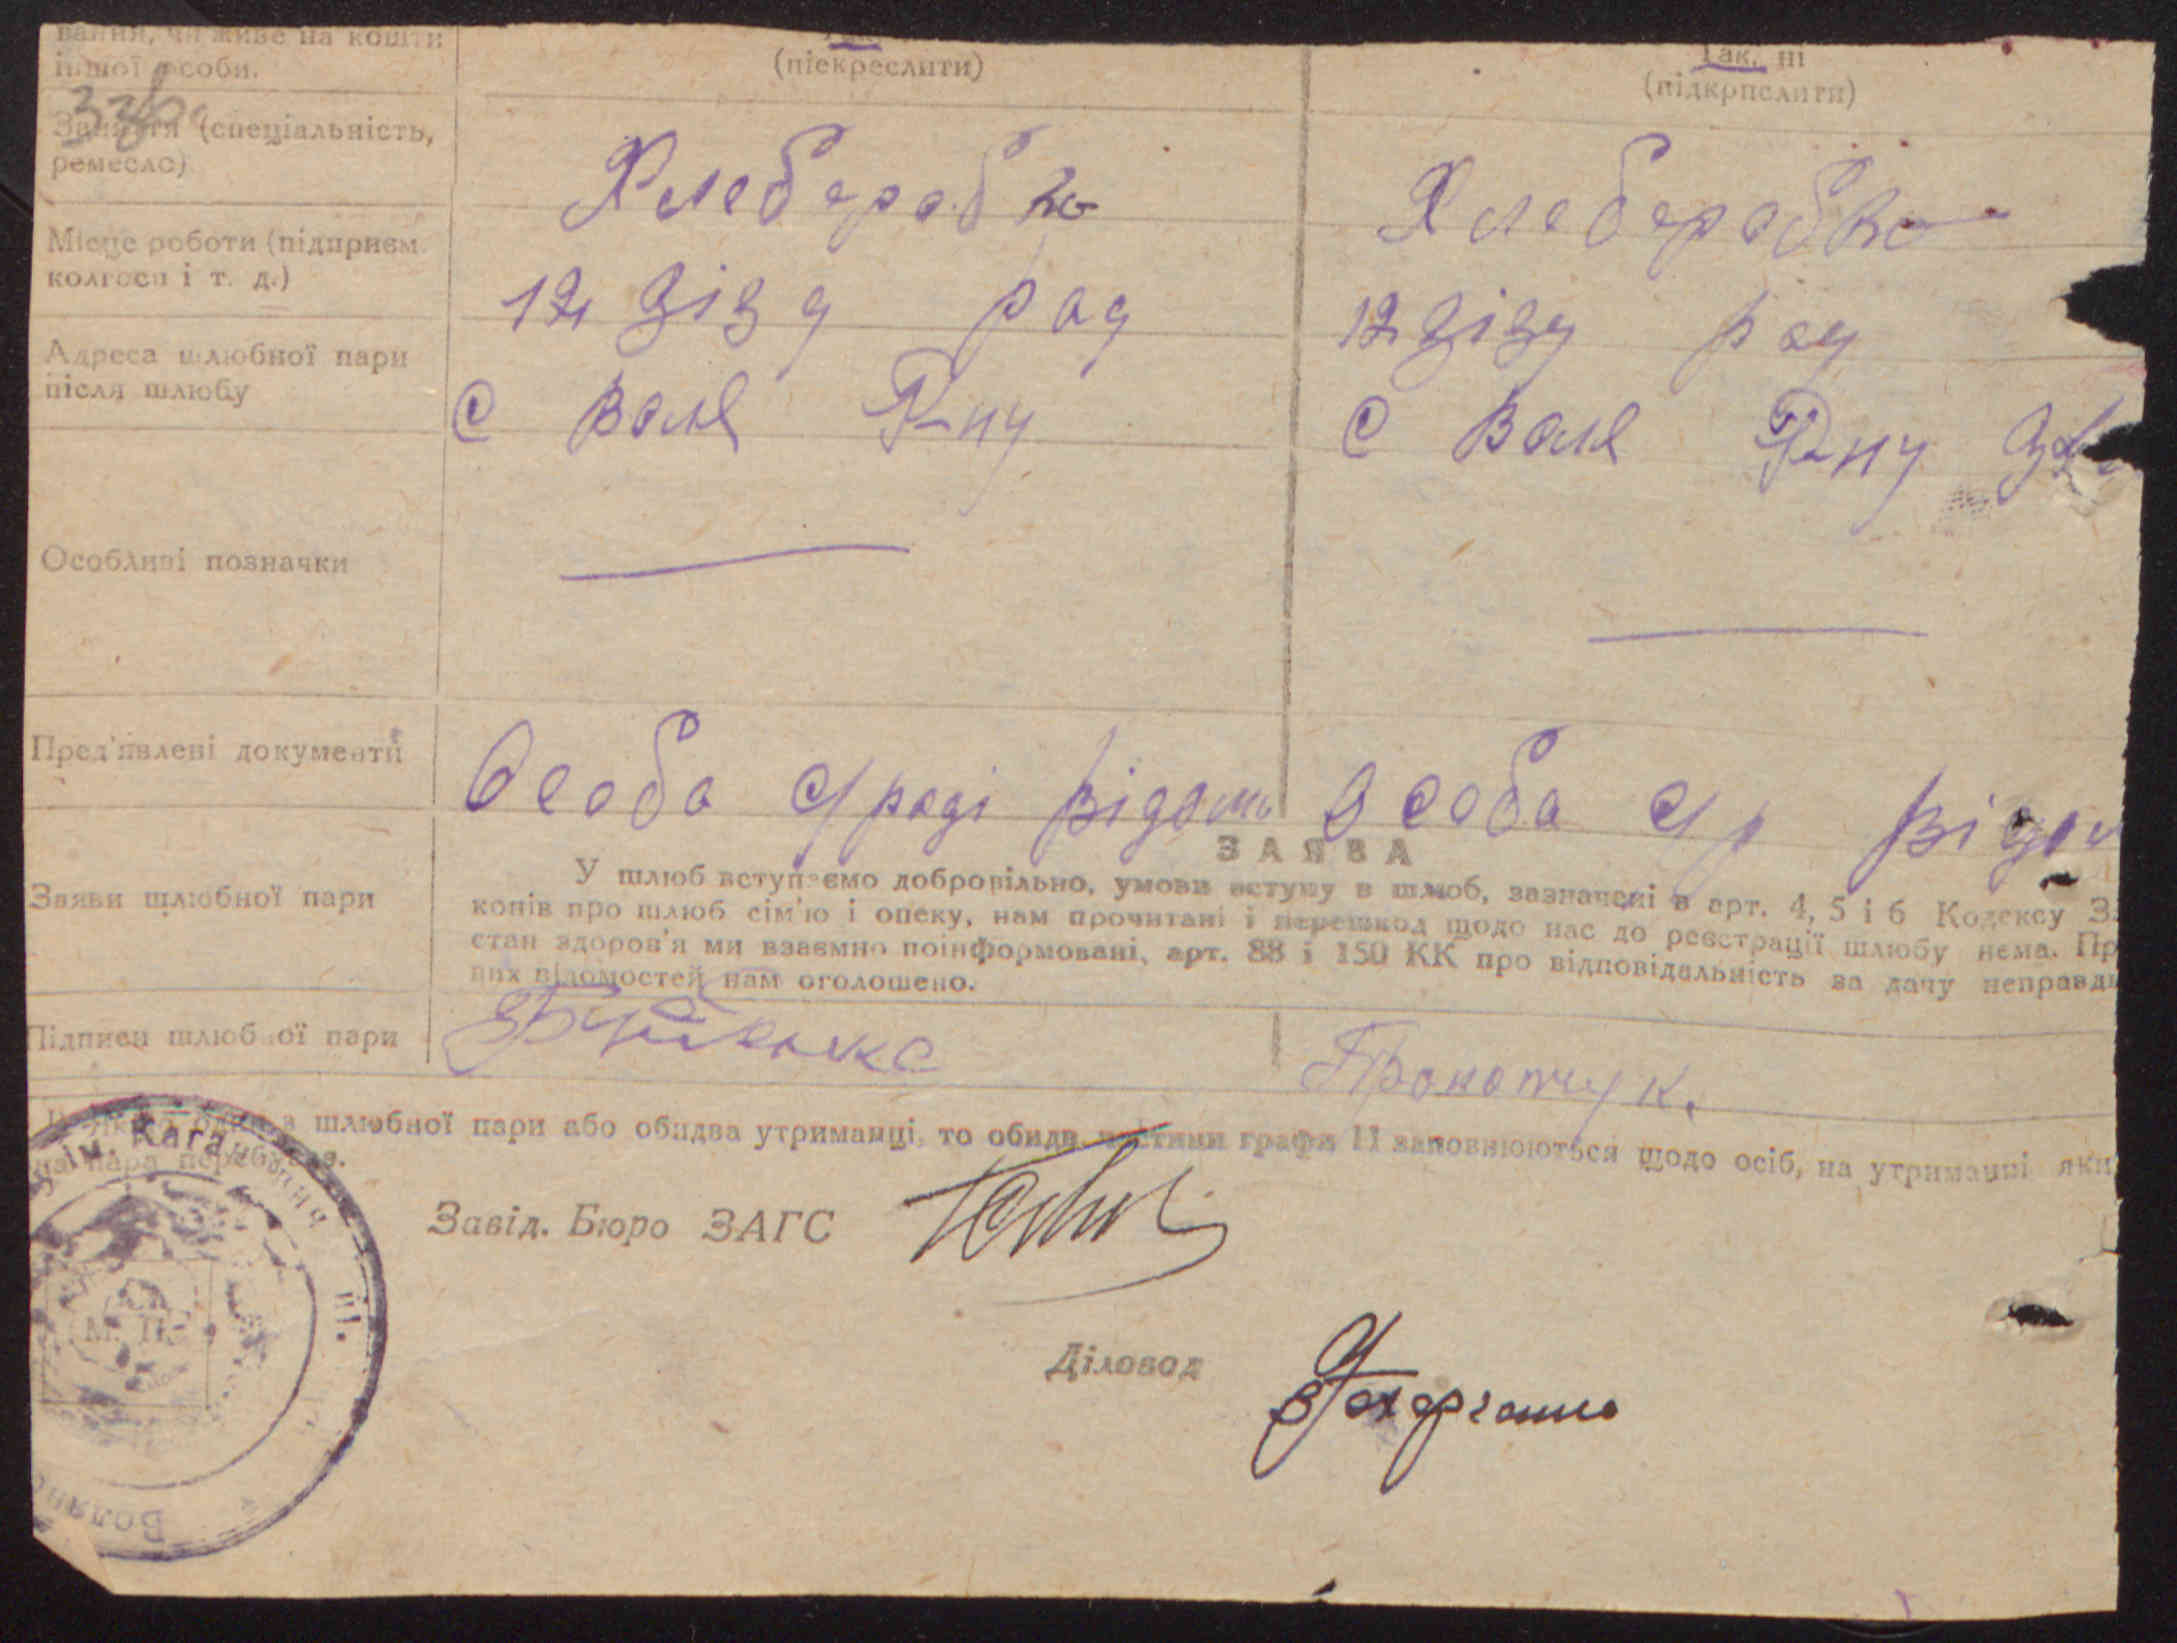 вання, чи живе на кошти
іншої особи.
Так,
(піекреслити)
Так, ні
(підкрпслити)
Заняття (спеціальність,
ремесло)
Хлебороб
Хлебороб
Місце роботи (підприєм.
колгосп і т. д.)
12 зізд рад
12 зізду рад
Адреса шлюбної пари
після шлюбу
с Воля Р-ну
с Воля Р-ну
Особливі позначки
Пред'явлені документи
Особа с/раді відома
Особа с/р відом
ЗАЯВА
Заяви шлюбної пари
У шлюб вступаємо добровільно, умови вступу в шлюб, зазначені в арт. 4, 5 і 6 Кодексу За
конів про шлюб сім'ю і опеку, нам прочитані і перешкод щодо нас до реєстрації шлюбу нема. Пр
стан здоров'я ми взаємно поінформовані, арт. 88 і 150 КК про відповідальність за дачу неправди
вих відомостей нам оголошено.
Підписи шлюбної пари
Прокопчук.
один з шлюбної пари або обидва утриманці, то обидві частини графи 11 заповнюються щодо осіб, на утриманні яки
на пара перебуває.
ім. Кагановича
Завід. Бюро ЗАГС
М. П.
Діловод